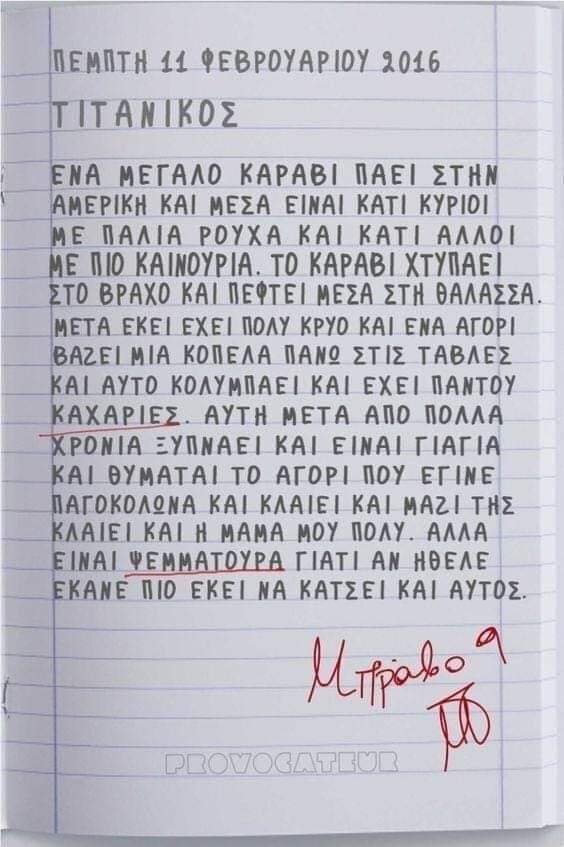 ΠΕΜΠΤΗ 11 ΦΕΒΡΟΥΑΡΙΟΥ 2016
ΤΙΤΑΝΙΚΟΣ
ΕΝΑ ΜΕΓΑΛΟ ΚΑΡΑΒΙ ΠΑΕΙ ΣΤΗΝ
ΑΜΕΡΙΚΗ ΚΑΙ ΜΕΣΑ ΕΙΝΑΙ ΚΑΤΙ ΚΥΡΙΟΙ
ΜΕ ΠΑΛΙΑ ΡΟΥΧΑ ΚΑΙ ΚΑΤΙ ΑΛΛΟΙ
ΜΕ ΠΙΟ ΚΑΙΝΟΥΡΙΑ. ΤΟ ΚΑΡΑΒΙ ΧΤΥΠΑΕΙ
ΣΤΟ ΒΡΑΧΟ ΚΑΙ ΠΕΦΤΕΙ ΜΕΣΑ ΣΤΗ ΘΑΛΑΣΣΑ.
ΜΕΤΑ ΕΚΕΙ ΕΧΕΙ ΠΟΛΥ ΚΡΥΟ ΚΑΙ ΕΝΑ ΑΓΟΡΙ
ΒΑΖΕΙ ΜΙΑ ΚΟΠΕΛΑ ΠΑΝΩ ΣΤΙΣ ΤΑΒΛΕΣ
ΚΑΙ ΑΥΤΟ ΚΟΛΥΜΠΑΕΙ ΚΑΙ ΕΧΕΙ ΠΑΝΤΟΥ
ΚΑΧΑΡΙΕΣ. ΑΥΤΗ ΜΕΤΑ ΑΠΟ ΠΟΛΛΑ
ΧΡΟΝΙΑ ΞΥΠΝΑΕΙ ΚΑΙ ΕΙΝΑΙ ΓΙΑΓΙΑ
ΚΑΙ ΘΥΜΑΤΑΙ ΤΟ ΑΓΟΡΙ ΠΟΥ ΕΓΙΝΕ
ΠΑΓΟΚΟΛΩΝΑ ΚΑΙ ΚΛΑΙΕΙ ΚΑΙ ΜΑΖΙ ΤΗΣ
ΚΛΑΙΕΙ ΚΑΙ Η ΜΑΜΑ ΜΟΥ ΠΟΛΥ. ΑΛΛΑ
ΕΙΝΑΙ ΨΕΜΜΑΤΟΥΡΑ ΓΙΑΤΙ ΑΝ ΗΘΕΛΕ
ΕΚΑΝΕ ΠΙΟ ΕΚΕΙ ΝΑ ΚΑΤΣΕΙ ΚΑΙ ΑΥΤΟΣ.
Μπράβο 9
PROVOCATEUR